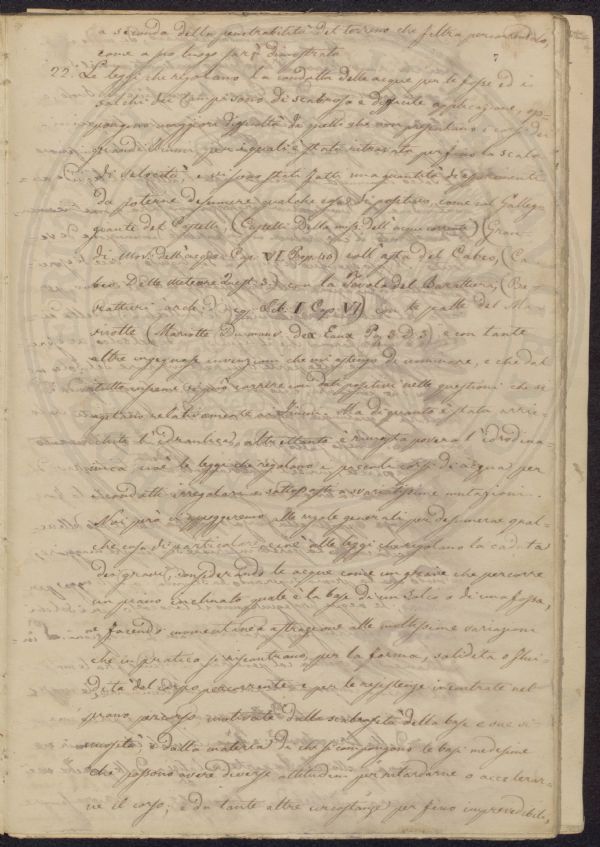 a seconda della penetrabilità del terreno che filtra percorrendolo,
come a suo luogo sarà dimostrato
7
22. Le leggi che regolano la condotta delle acque per le fosse ed i
solchi dei campi sono di scabrosa e difficile applicazione, op-
pongono maggiori difficoltà di quello che non presentano i corsi dei
grandi fiumi per i quali è stata ritrovata per fino la scala
di velocità e vi sono stati fatti una quantità di esperimenti
da poterne desumere qualche cosa di positivo, come col Galleg-
giante del Castelli (Castelli Della mis. dell'acque correnti) (Gran-
di Mov. dell'acque Cap. VI Prop. 40) coll'asta del Cabeo, (Ca-
beo Delle Meteore quest. 3.) con la Tavola del Barattieri, (Ba-
rattieri Arch. d'acq. Lib. I Cap. VI) con le palle del Ma-
riotte (Mariotte Du mouv. des Eaux Pa. 3 D. 3) e con tante
altre ingegnose invenzioni che mi astengo di nominare, e che dal
tutto insieme si può correre con dati positivi nelle questioni che si
agitano relativamente ai fiumi. Ma di quanto è stata arric-
chita l'idraulica, altrettanto è rimasta povera l'idrodina-
mica cioè le leggi che regolano i piccoli corsi di acqua per
condotti irregolari e sottoposti a svariatissime mutazioni.
Noi però ci spiegheremo alle regole generali per desumerne qual-
che cosa di particolare, cioè alle leggi che regolano la caduta
dei gravi, considerando le acque come un grave che percorre
un piano inclinato quale è la base di un solco o di una fossa,
e facendo momentanea astrazione alle moltissime variazioni
che in pratica si riscontrano, per la forma, solidità o flui-
dità del corpo percorrente e per le resistenze incontrate nel
piano percorso motivate dalla scabrosità della base e sue si-
nuosità e dalla materia da che si compongono le basi medesime
che possono avere diverse attitudini per ritardarne o accelerar-
ne il corso; e da tante altre circostanze per fino imprevedibili,